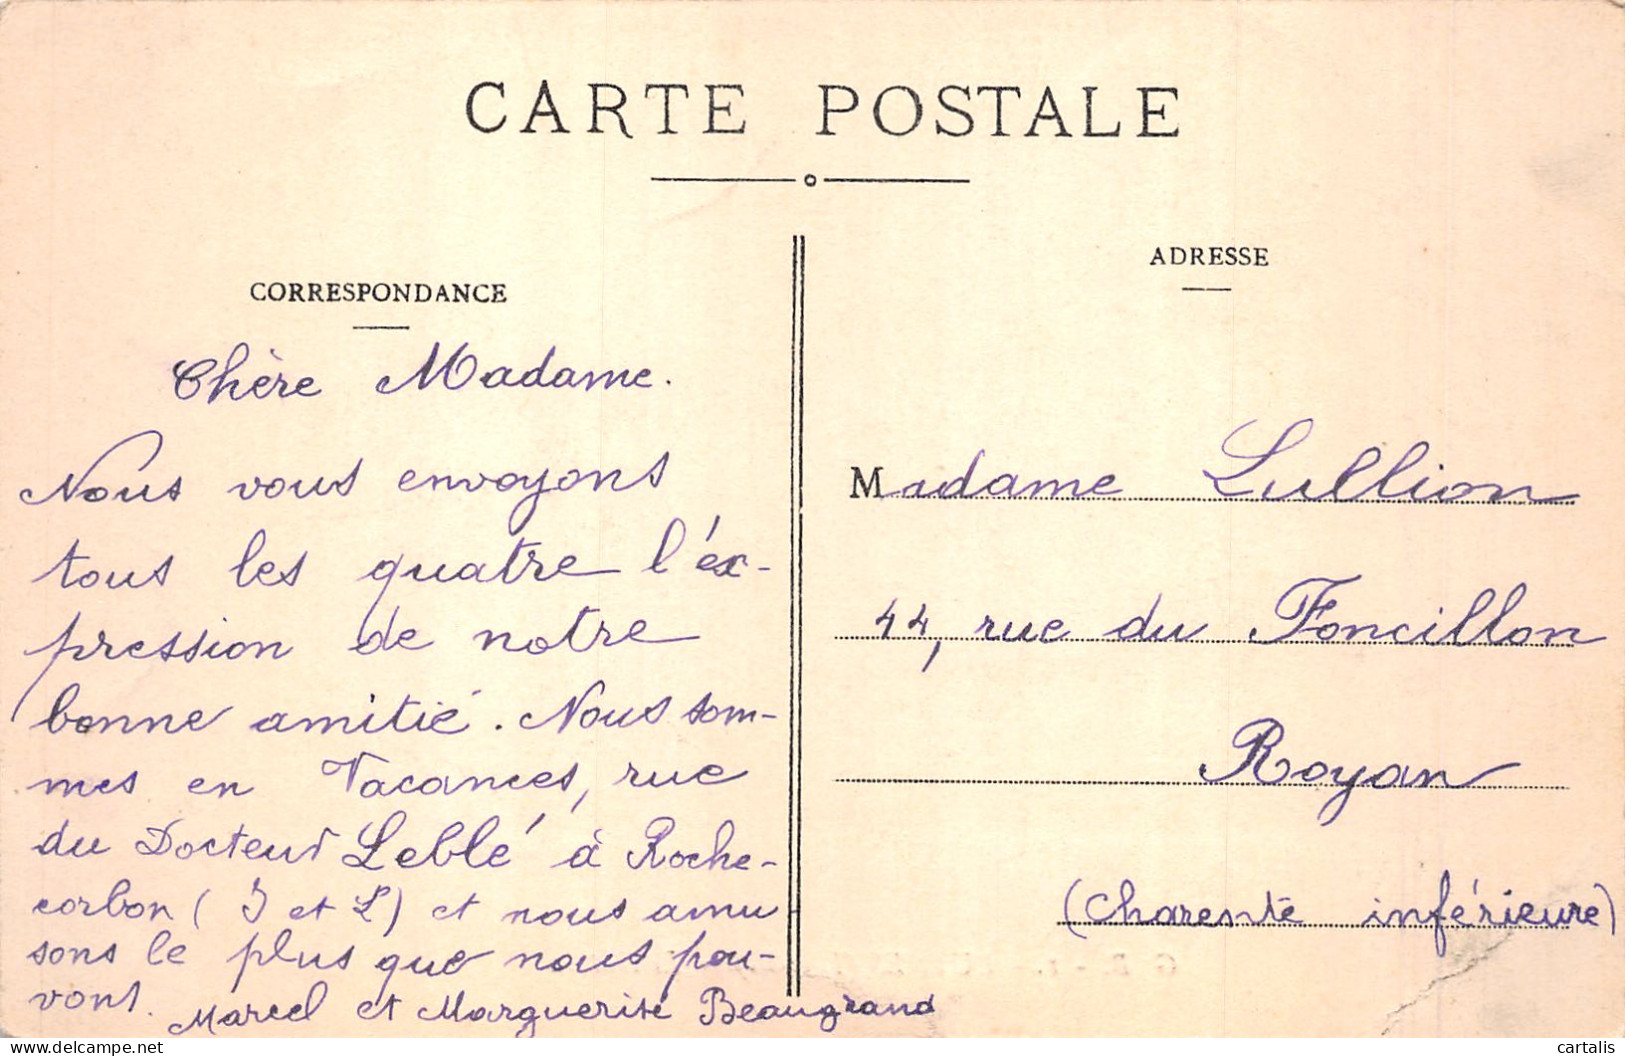 CARTE POSTALE
CORRESPONDANCE
Chère Madame.
Nous vous envoyons
tous les quatre l'éx-
pression de notre
bonne amitié. Nous som-
mes en Vacances, rue
du Docteur Leblé à Roche-
corbon (I et L) et nous amu
sons le plus que nous pou-
vons.
Marcel et Marguerite Beaugrand
ADRESSE
Madame Lullion
44, rue du Foncillon
Royan
(Charente inférieure)
cartalis